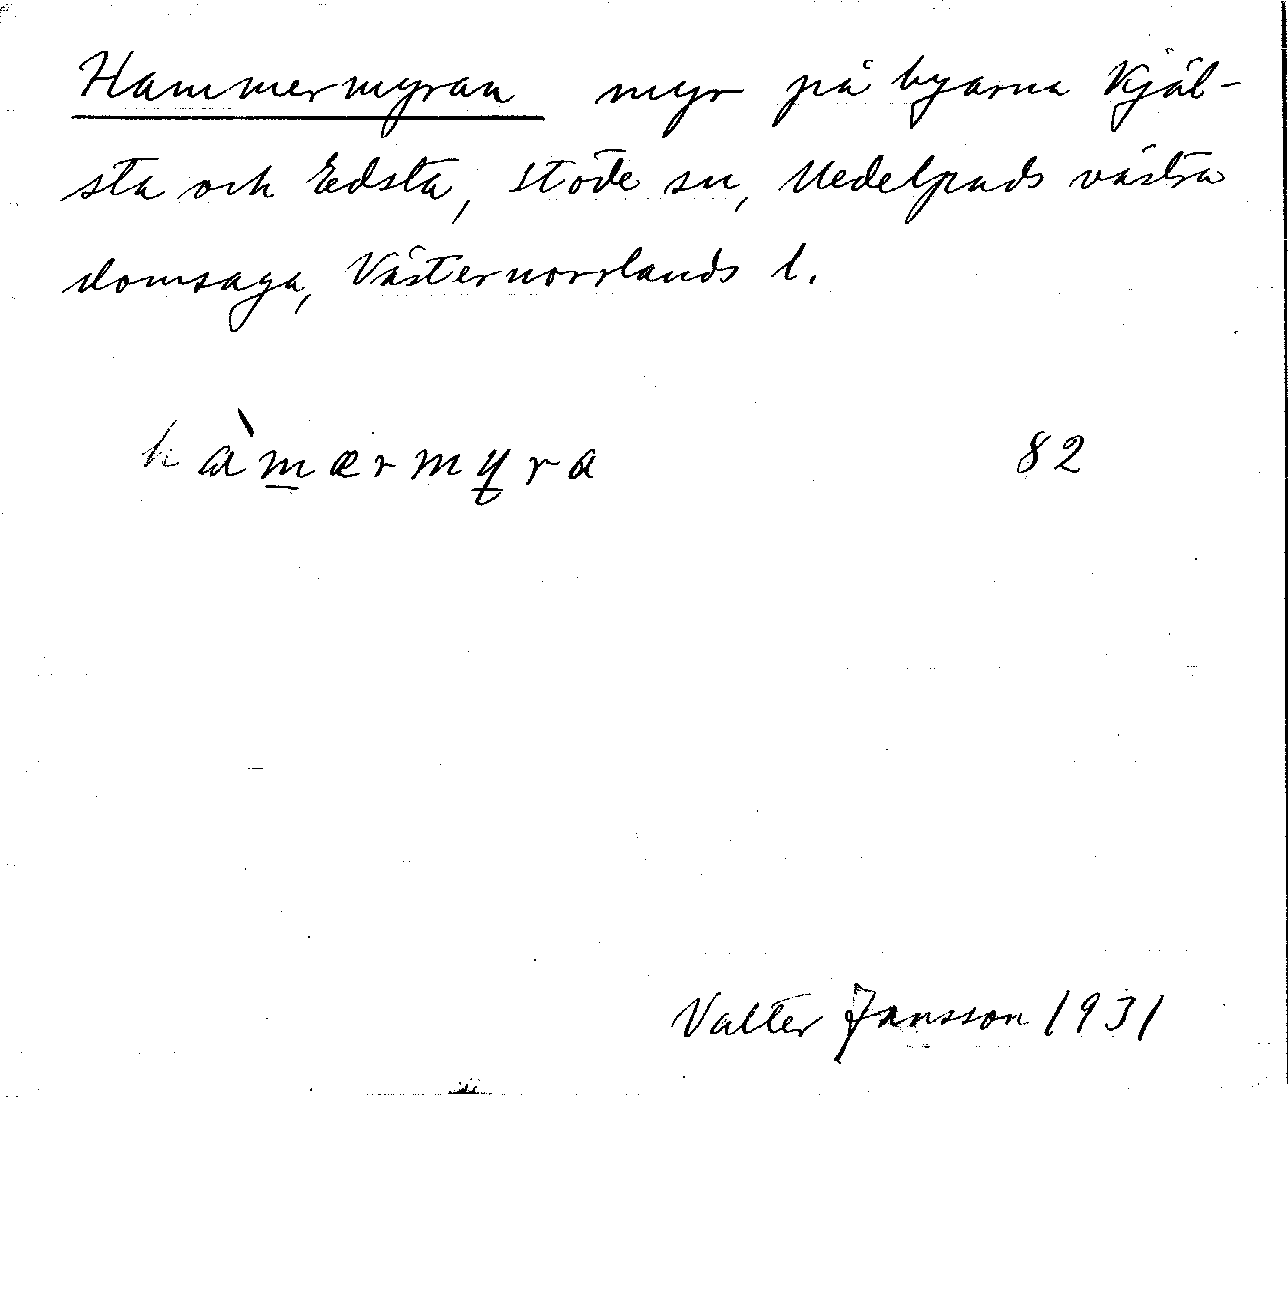 Hammermyran myr på byarna Kjäl-
sta och Edsta, Stöde sn, Medelpads västra
domsaga, Västernorrlands l.
hàm̲ærmy̲ra 82
Valter Jansson 1931